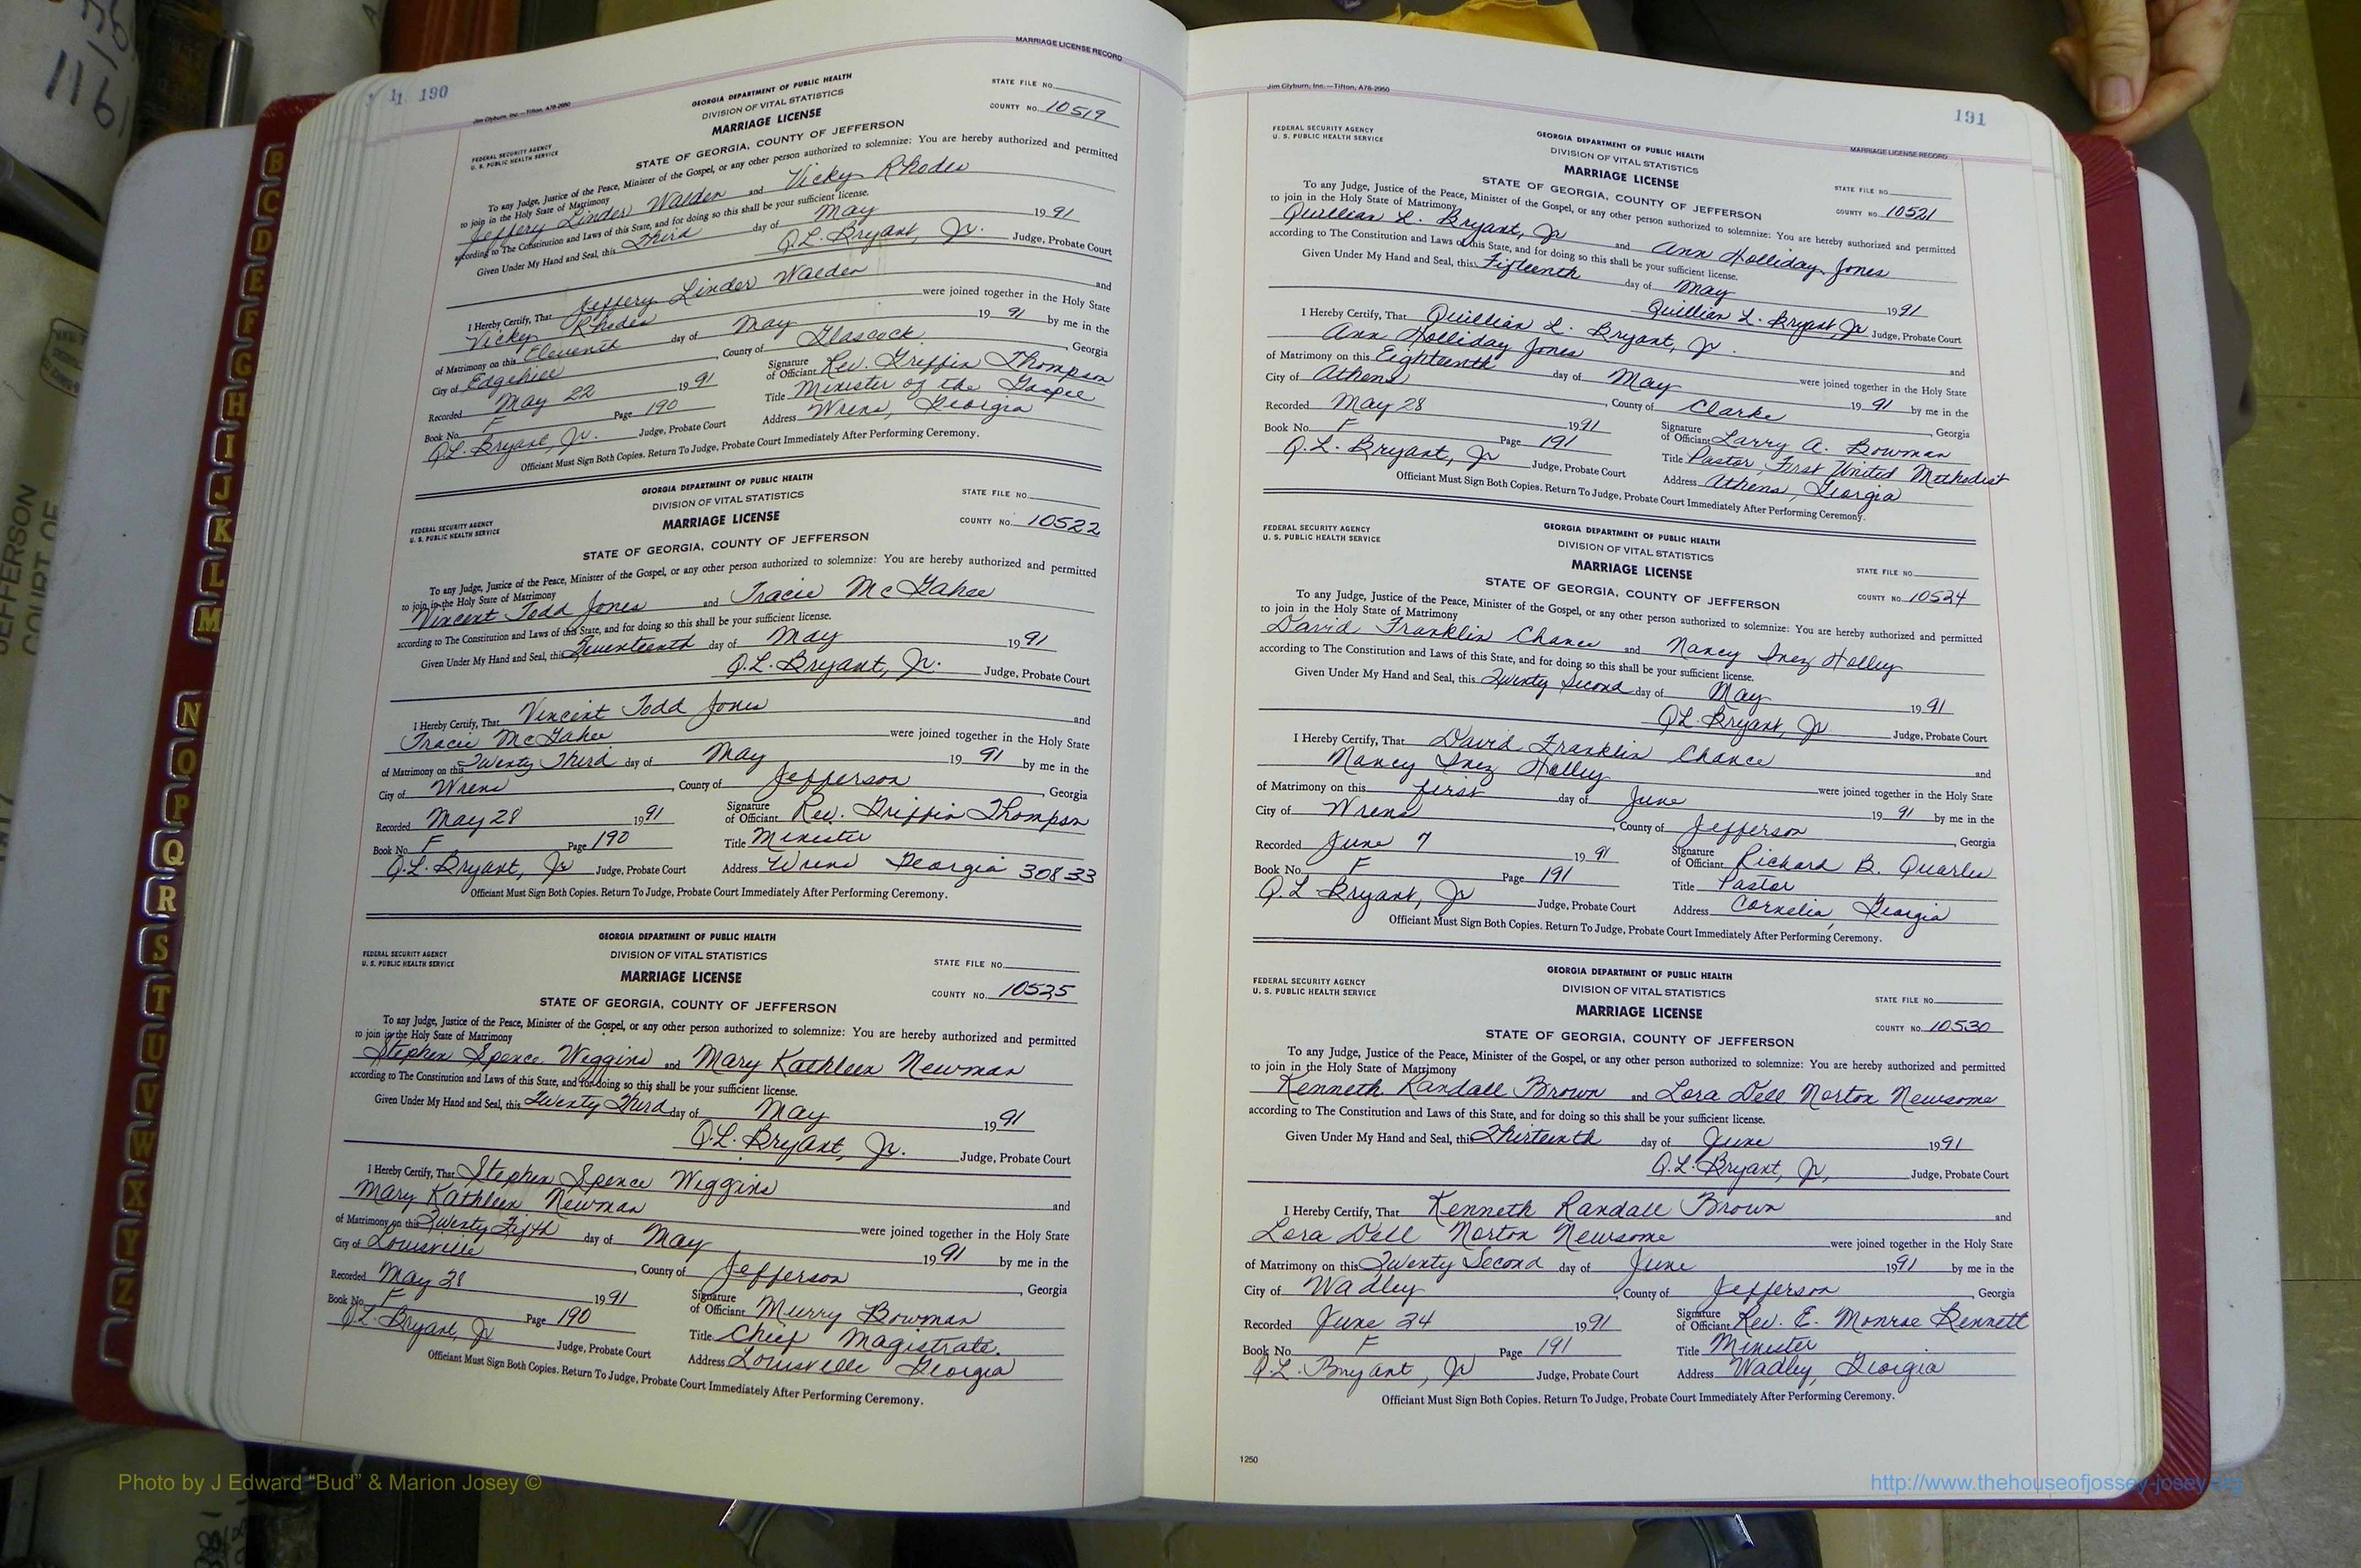 116
JEFFERSON
COURT OF
B
C
D
E
F
G
H
I
J
K
L
M
N
O
P
Q
R
S
T
U
V
W
X
Y
Z
190
MARRIAGE LICENSE RECORD
Jim Clyburn, Inc.—Tifton, A78-2950
GEORGIA DEPARTMENT OF PUBLIC HEALTH
STATE FILE NO.
DIVISION OF VITAL STATISTICS
FEDERAL SECURITY AGENCY
U. S. PUBLIC HEALTH SERVICE
MARRIAGE LICENSE
COUNTY NO. 10519
STATE OF GEORGIA, COUNTY OF JEFFERSON
To any Judge, Justice of the Peace, Minister of the Gospel, or any other person authorized to solemnize: You are hereby authorized and permitted
to join in the Holy State of Matrimony
Jeffery Linder Walden and Vicky Rhodes
according to The Constitution and Laws of this State, and for doing so this shall be your sufficient license.
Given Under My Hand and Seal, this Third day of May 1991
Q.L. Bryant, Jr. Judge, Probate Court
I Hereby Certify, That Jeffery Linder Walden and
Vicky Rhodes were joined together in the Holy State
of Matrimony on this Eleventh day of May 1991 by me in the
City of Edgehill, County of Glascock, Georgia
Recorded May 22 1991 Signature of Officiant Rev. Griffin Thompson
Book No. F Page 190 Title Minister of the Gospel
Q.L. Bryant, Jr. Judge, Probate Court Address Wrens, Georgia
Officiant Must Sign Both Copies. Return To Judge, Probate Court Immediately After Performing Ceremony.
GEORGIA DEPARTMENT OF PUBLIC HEALTH
DIVISION OF VITAL STATISTICS
STATE FILE NO.
FEDERAL SECURITY AGENCY
U. S. PUBLIC HEALTH SERVICE
MARRIAGE LICENSE
COUNTY NO. 10522
STATE OF GEORGIA, COUNTY OF JEFFERSON
To any Judge, Justice of the Peace, Minister of the Gospel, or any other person authorized to solemnize: You are hereby authorized and permitted
to join in the Holy State of Matrimony
Vincent Todd Jones and Tracie McGahee
according to The Constitution and Laws of this State, and for doing so this shall be your sufficient license.
Given Under My Hand and Seal, this Seventeenth day of May 1991
Q.L. Bryant, Jr. Judge, Probate Court
I Hereby Certify, That Vincent Todd Jones and
Tracie McGahee were joined together in the Holy State
of Matrimony on this Twenty Third day of May 1991 by me in the
City of Wrens, County of Jefferson, Georgia
Recorded May 28 1991 Signature of Officiant Rev. Griffin Thompson
Book No. F Page 190 Title Minister
Q.L. Bryant, Jr Judge, Probate Court Address Wrens Georgia 30833
Officiant Must Sign Both Copies. Return To Judge, Probate Court Immediately After Performing Ceremony.
GEORGIA DEPARTMENT OF PUBLIC HEALTH
DIVISION OF VITAL STATISTICS
STATE FILE NO.
FEDERAL SECURITY AGENCY
U. S. PUBLIC HEALTH SERVICE
MARRIAGE LICENSE
COUNTY NO. 10525
STATE OF GEORGIA, COUNTY OF JEFFERSON
To any Judge, Justice of the Peace, Minister of the Gospel, or any other person authorized to solemnize: You are hereby authorized and permitted
to join in the Holy State of Matrimony
Stephen Spence Wiggins and Mary Kathleen Newman
according to The Constitution and Laws of this State, and for doing so this shall be your sufficient license.
Given Under My Hand and Seal, this Twenty Third day of May 1991
Q.L. Bryant, Jr. Judge, Probate Court
I Hereby Certify, That Stephen Spence Wiggins and
Mary Kathleen Newman were joined together in the Holy State
of Matrimony on this Twenty Fifth day of May 1991 by me in the
City of Louisville, County of Jefferson, Georgia
Recorded May 28 1991 Signature of Officiant Murry Bowman
Book No. F Page 190 Title Chief Magistrate.
Q.L. Bryant, Jr Judge, Probate Court Address Louisville Georgia
Officiant Must Sign Both Copies. Return To Judge, Probate Court Immediately After Performing Ceremony.
Jim Clyburn, Inc.—Tifton, A78-2950
191
MARRIAGE LICENSE RECORD
FEDERAL SECURITY AGENCY
U. S. PUBLIC HEALTH SERVICE
GEORGIA DEPARTMENT OF PUBLIC HEALTH
DIVISION OF VITAL STATISTICS
MARRIAGE LICENSE
STATE FILE NO.
STATE OF GEORGIA, COUNTY OF JEFFERSON
COUNTY NO. 10521
To any Judge, Justice of the Peace, Minister of the Gospel, or any other person authorized to solemnize: You are hereby authorized and permitted
to join in the Holy State of Matrimony
Quillian L. Bryant, Jr and Ann Holliday Jones
according to The Constitution and Laws of this State, and for doing so this shall be your sufficient license.
Given Under My Hand and Seal, this Fifteenth day of May 1991
Quillian L. Bryant, Jr Judge, Probate Court
I Hereby Certify, That Quillian L. Bryant, Jr. and
Ann Holliday Jones were joined together in the Holy State
of Matrimony on this Eighteenth day of May 1991 by me in the
City of Athens, County of Clarke, Georgia
Recorded May 28 1991 Signature of Officiant Larry A. Bowman
Book No. F Page 191 Title Pastor, First United Methodist
Q.L. Bryant, Jr Judge, Probate Court Address Athens, Georgia
Officiant Must Sign Both Copies. Return To Judge, Probate Court Immediately After Performing Ceremony.
FEDERAL SECURITY AGENCY
U. S. PUBLIC HEALTH SERVICE
GEORGIA DEPARTMENT OF PUBLIC HEALTH
DIVISION OF VITAL STATISTICS
MARRIAGE LICENSE
STATE FILE NO.
STATE OF GEORGIA, COUNTY OF JEFFERSON
COUNTY NO. 10524
To any Judge, Justice of the Peace, Minister of the Gospel, or any other person authorized to solemnize: You are hereby authorized and permitted
to join in the Holy State of Matrimony
David Franklin Chance and Nancy Inez Holley
according to The Constitution and Laws of this State, and for doing so this shall be your sufficient license.
Given Under My Hand and Seal, this Twenty Second day of May 1991
Q.L. Bryant, Jr Judge, Probate Court
I Hereby Certify, That David Franklin Chance and
Nancy Inez Holley were joined together in the Holy State
of Matrimony on this first day of June 1991 by me in the
City of Wrens, County of Jefferson, Georgia
Recorded June 7 1991 Signature of Officiant Richard B. Quarles
Book No. F Page 191 Title Pastor
Q.L Bryant, Jr Judge, Probate Court Address Cornelia, Georgia
Officiant Must Sign Both Copies. Return To Judge, Probate Court Immediately After Performing Ceremony.
GEORGIA DEPARTMENT OF PUBLIC HEALTH
FEDERAL SECURITY AGENCY
U. S. PUBLIC HEALTH SERVICE
DIVISION OF VITAL STATISTICS
STATE FILE NO.
MARRIAGE LICENSE
COUNTY NO. 10530
STATE OF GEORGIA, COUNTY OF JEFFERSON
To any Judge, Justice of the Peace, Minister of the Gospel, or any other person authorized to solemnize: You are hereby authorized and permitted
to join in the Holy State of Matrimony
Kenneth Randall Brown and Lora Dell Norton Newsome
according to The Constitution and Laws of this State, and for doing so this shall be your sufficient license.
Given Under My Hand and Seal, this Thirteenth day of June 1991
Q.L. Bryant, Jr, Judge, Probate Court
I Hereby Certify, That Kenneth Randall Brown and
Lora Dell Norton Newsome were joined together in the Holy State
of Matrimony on this Twenty Second day of June 1991 by me in the
City of Wadley, County of Jefferson, Georgia
Recorded June 24 1991 Signature of Officiant Rev. E. Monroe Bennett
Book No. F Page 191 Title Minister
Q.L. Bryant, Jr Judge, Probate Court Address Wadley, Georgia
Officiant Must Sign Both Copies. Return To Judge, Probate Court Immediately After Performing Ceremony.
1250
Photo by J Edward “Bud” & Marion Josey ©
http://www.thehouseofjossey-josey.org